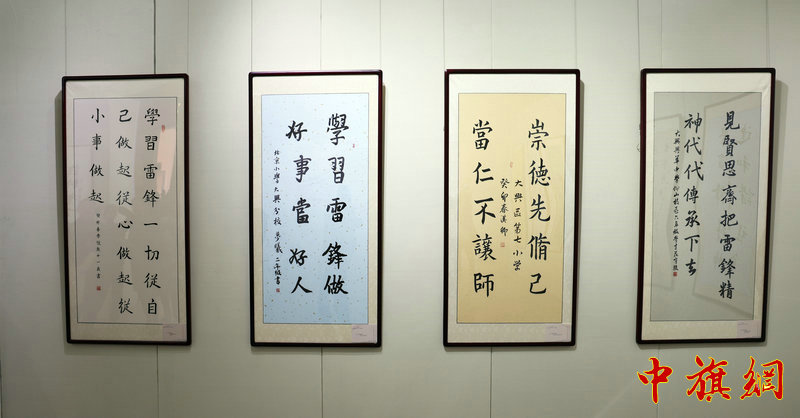 學習雷鋒一切從自
己做起從心做起從
小事做起
學習雷鋒做
好事當好人
北京小學大興分校 二年級書
崇德先脩己
當仁不讓師
大興區第七小学
癸卯春
見賢思齊把雷鋒精
神代代傳承下去
中旗網